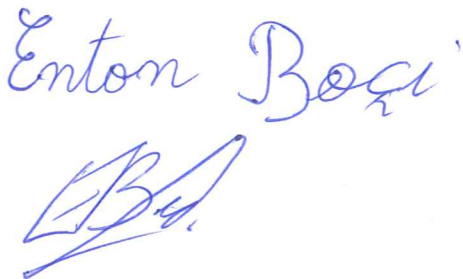 Enton Boçi